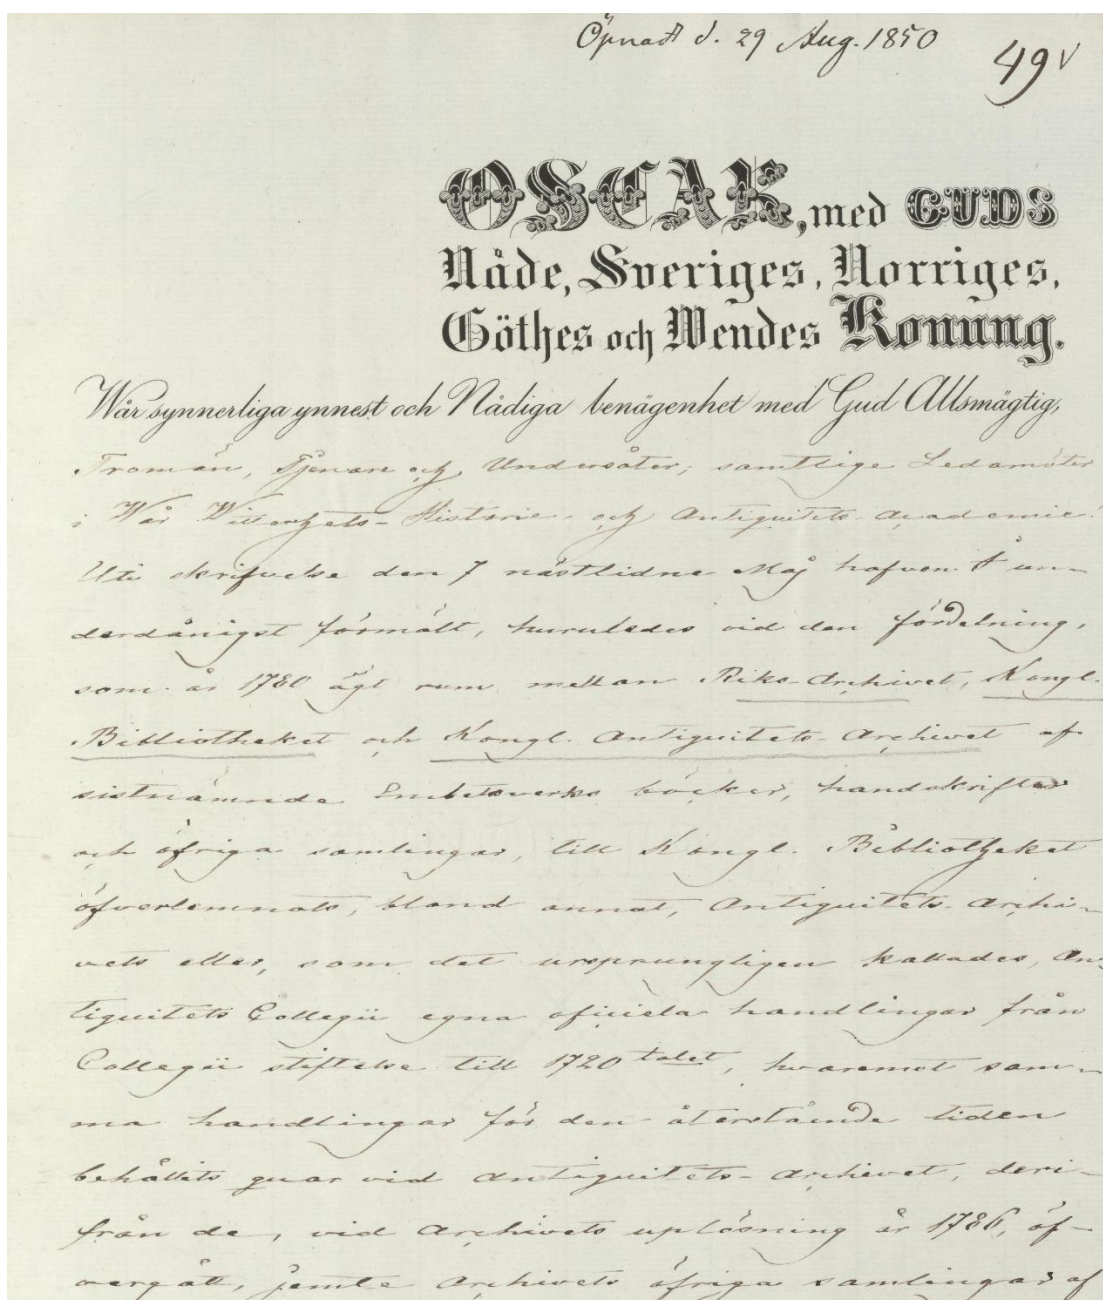 Öpnadt d. 29 Aug. 1850
49
OSCAR, med GUDS
Nåde, Sveriges, Norriges,
Göthes och Wendes Konung.
Wår synnerliga ynnest och Nådiga benägenhet med Gud Allsmägtig,
Tromän, Tjenare och Undersåter, samtlige Ledamöter
i Wår Witterhets- Historie- och Antiquitets-Academie!
Uti skrifvelse den 7 nästlidne Maj hafven I un-
derdånigst förmält, huruledes vid den fördelning,
som år 1780 ägt rum mellan Riks-Archivet, Kongl.
Bibliotheket och Kongl. Antiquitets-Archivet af
sistnämnde Embetsverks böcker, handskrifter
och öfriga samlingar, till Kongl. Bibliotheket
öfverlemnats, bland annat, Antiquitets-Archi-
vets eller, som det ursprungligen kallades, An-
tiquitets Collegii egna officiela handlingar från
Collegii stiftelse till 1720 talet, hvaremot sam-
ma handlingar för den återstående tiden
behållits quar vid Antiquitets-Archivet, deri-
från de, vid Archivets uplösning år 1786, öf-
vergått, jemte Archivets öfriga samlingar af